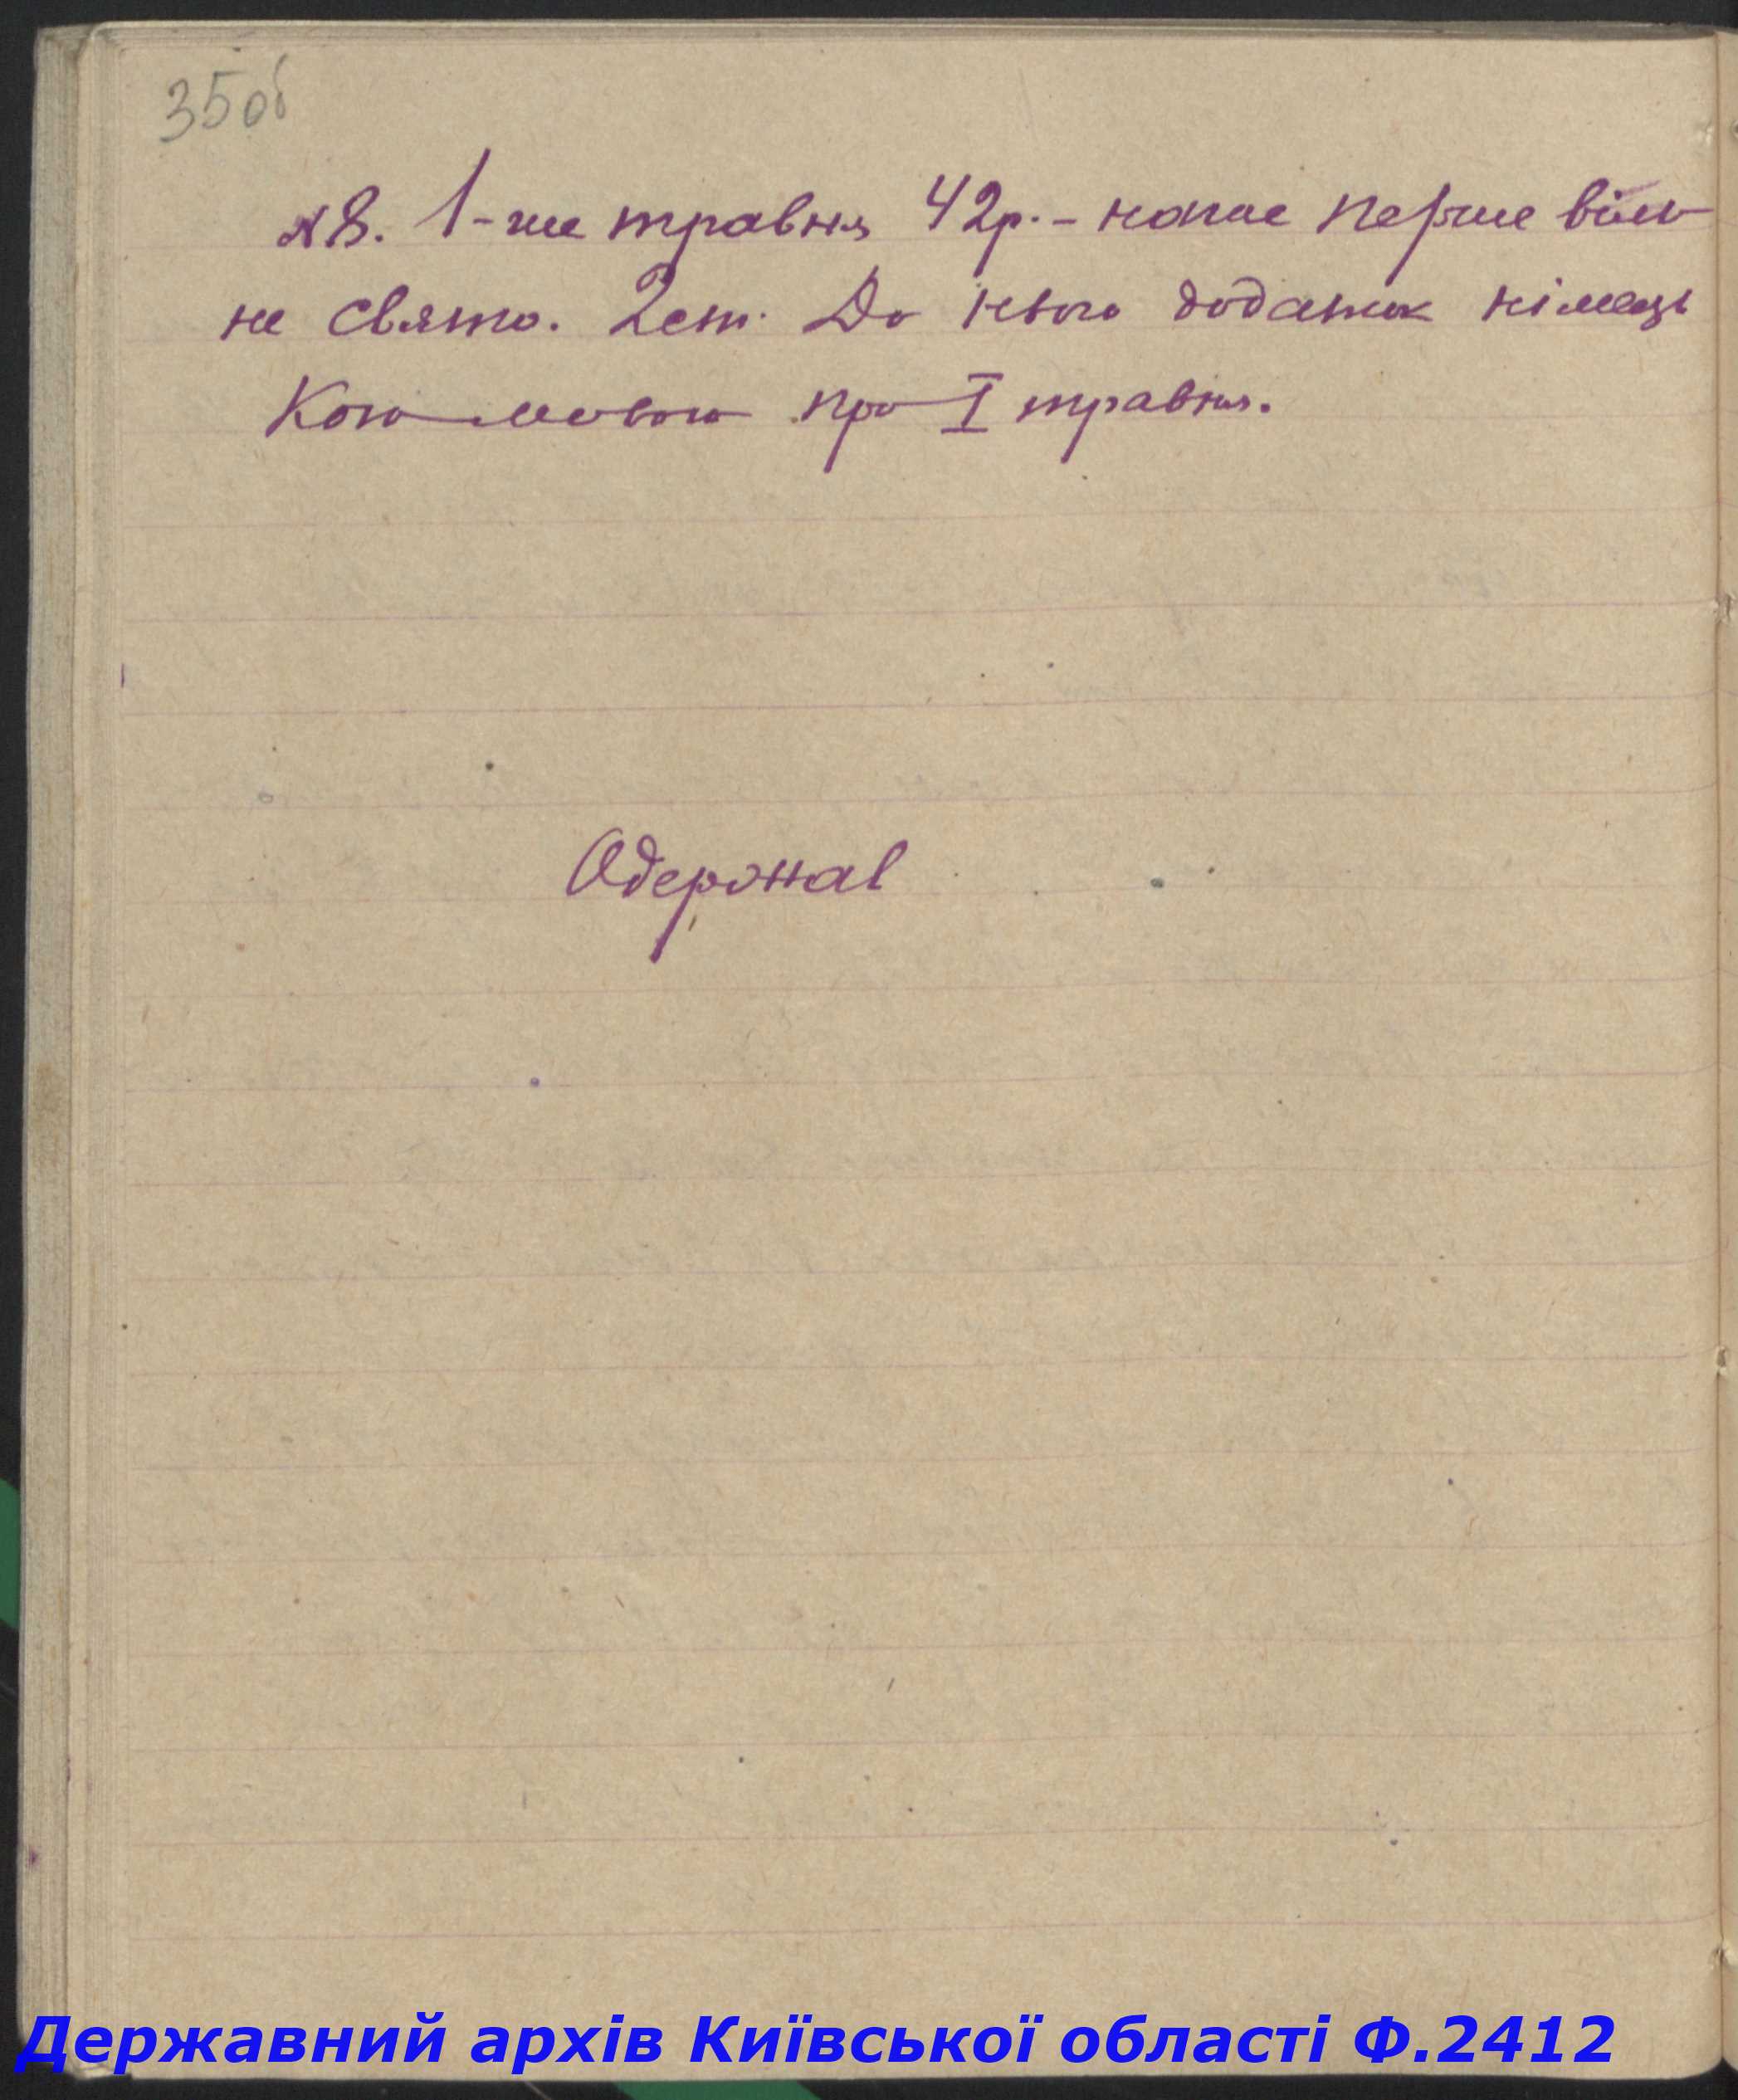 35об
№8. 1-ше травня 42р. – наше перше віль
не свято. 2ст. До нього додаток німець
кою мовою про I травня.
Одержав
Державний архів Київської області Ф.2412